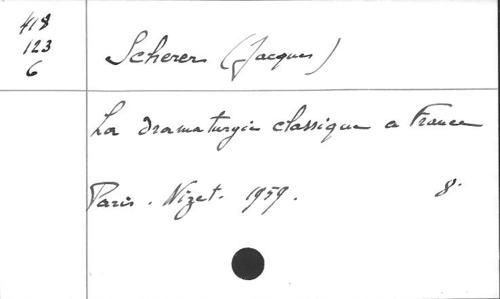 418
123
6
Scherer (Jacques)
La dramaturgie classique en France
Paris. Nizet. 1959. 8.